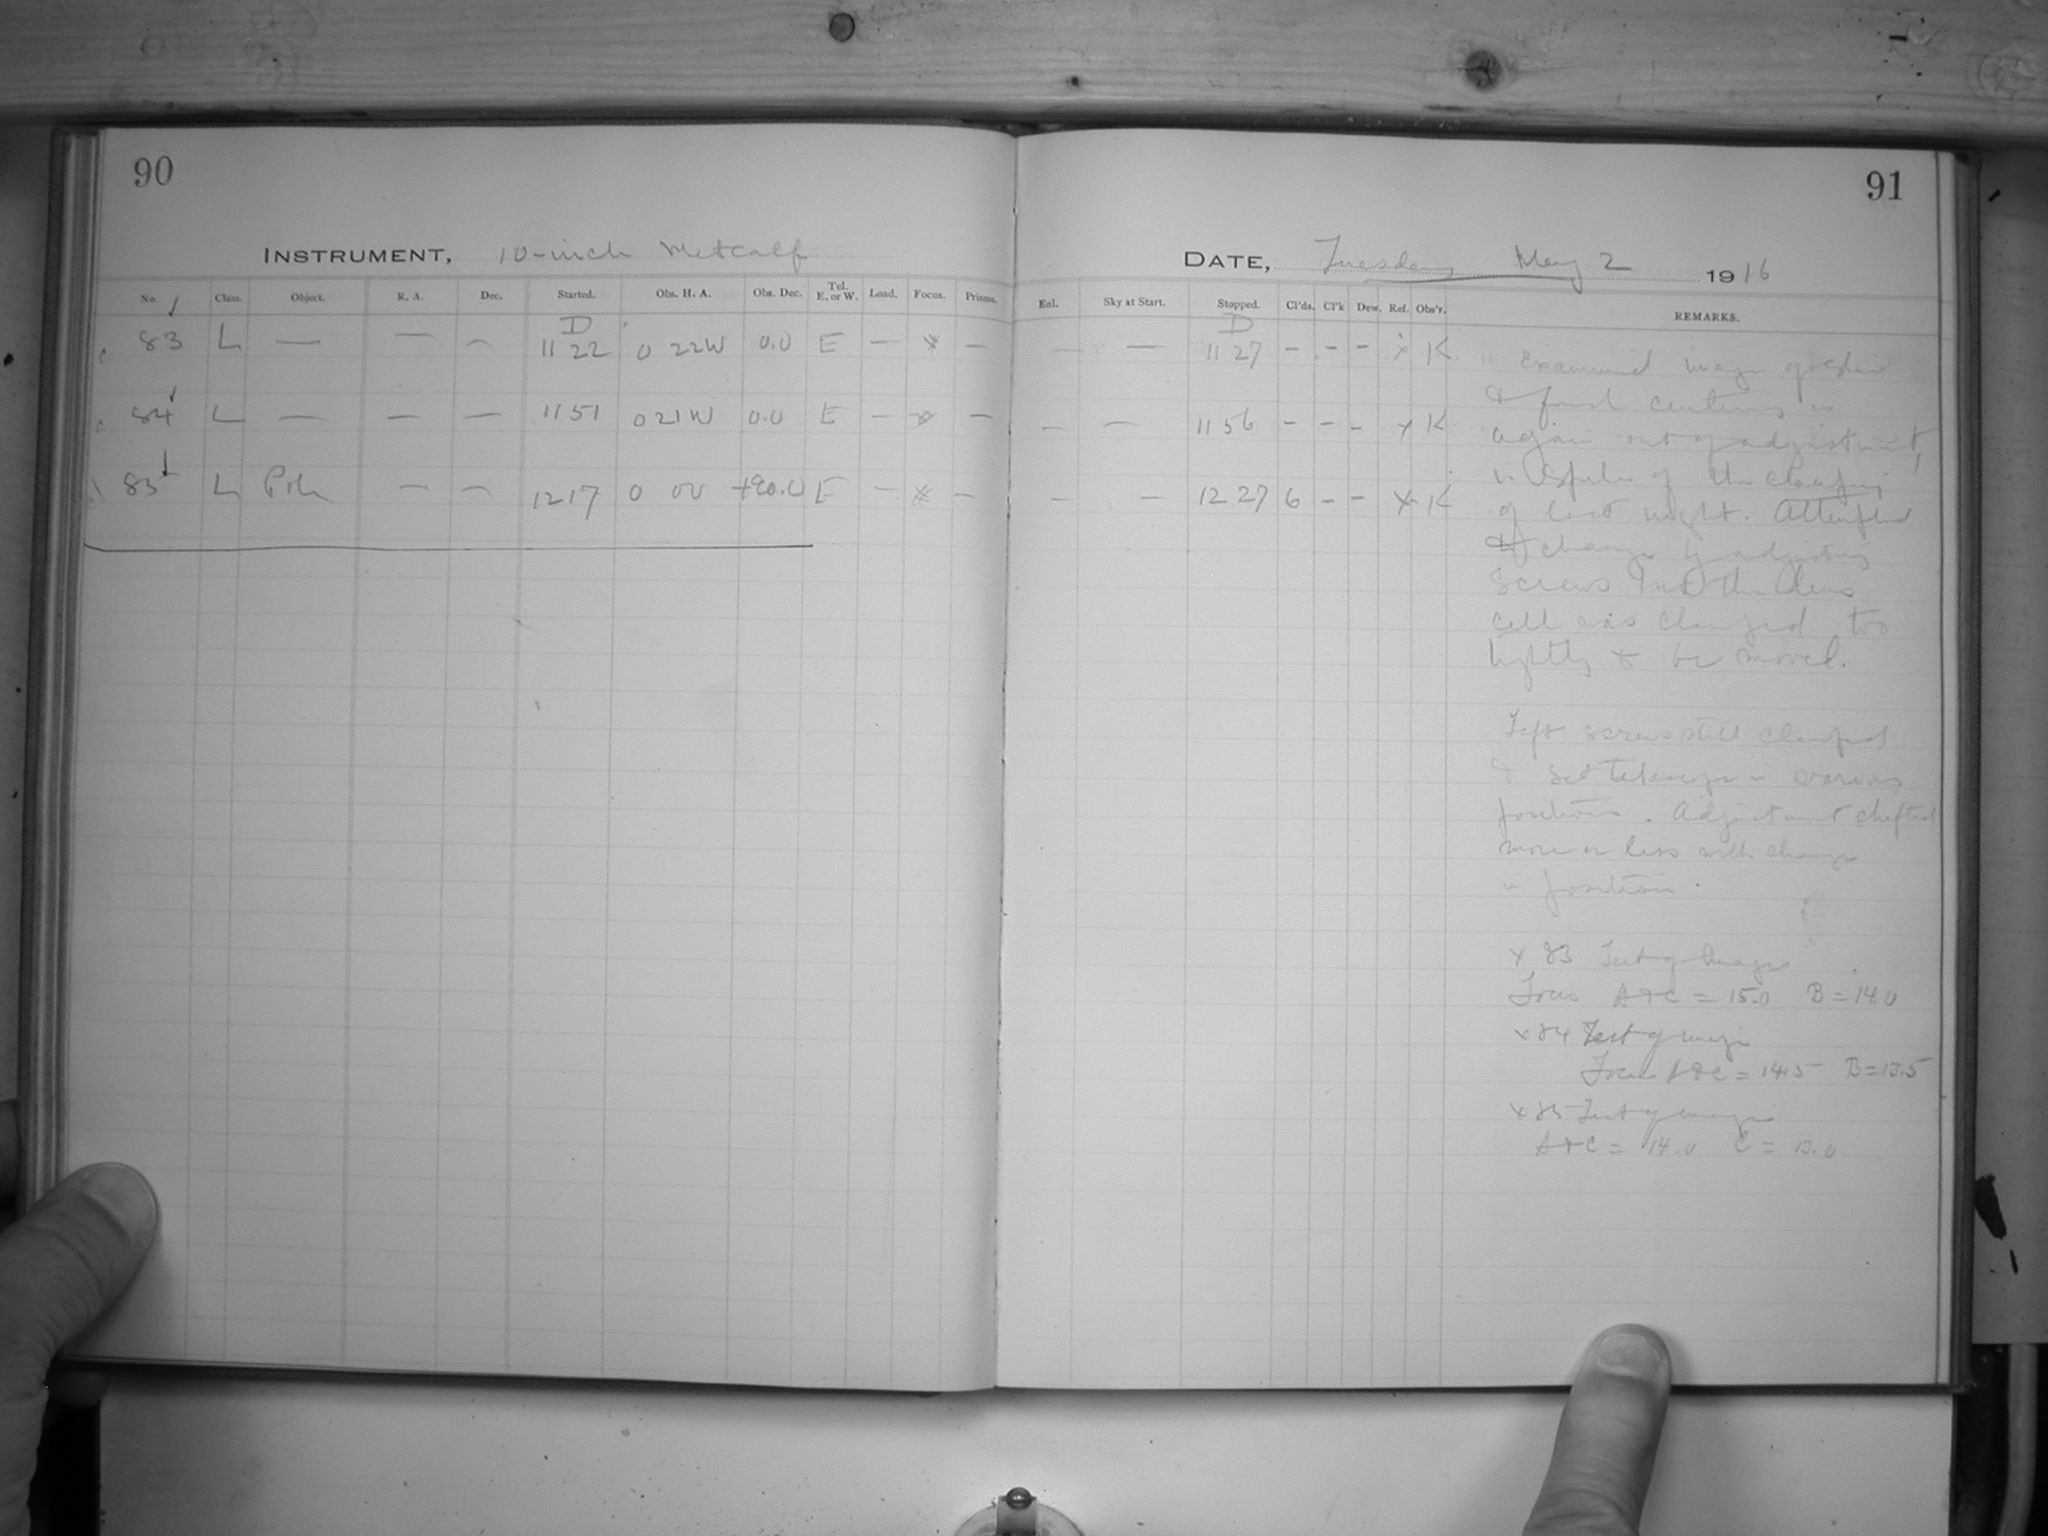 90
91
INSTRUMENT, 10-inch Metcalf
DATE, Tuesday May 2 1916
No. Class. Object. R. A. Dec. Started. Obs. H. A. Obs. Dec. Tel. E. or W. Load. Focus. Prisms.
Enl. Sky at Start. Stopped. Cl'ds. Cl'k Dew. Ref. Obs'r. REMARKS.
D
D
c 83 L — — — 11 22 0 22W 0.0 E — * —
— — 11 27 - - - x K
c 84 L — — — 11 51 0 21W 0.0 E — * —
— — 11 56 - - - x K
85 L Pole — — 12 17 0 00 +90.0 E — * —
— — 12 27 6 - - x K
Examined image
& found centering is
again out of adjustment,
in spite of the clamping
of last night. Attempted
to change by adjusting
screws but the lens
cell was clamped too
tightly to be moved.
Left screws still clamped
& set telescope in various
positions. Adjustment shifted
more or less with change
in position.
x 83 Test of Images
Focus A+C = 15.0 B = 14.0
x 84 Test of images
Focus A+C = 14.5 B = 13.5
x 85 Test of images
A+C = 14.0 C = 13.0